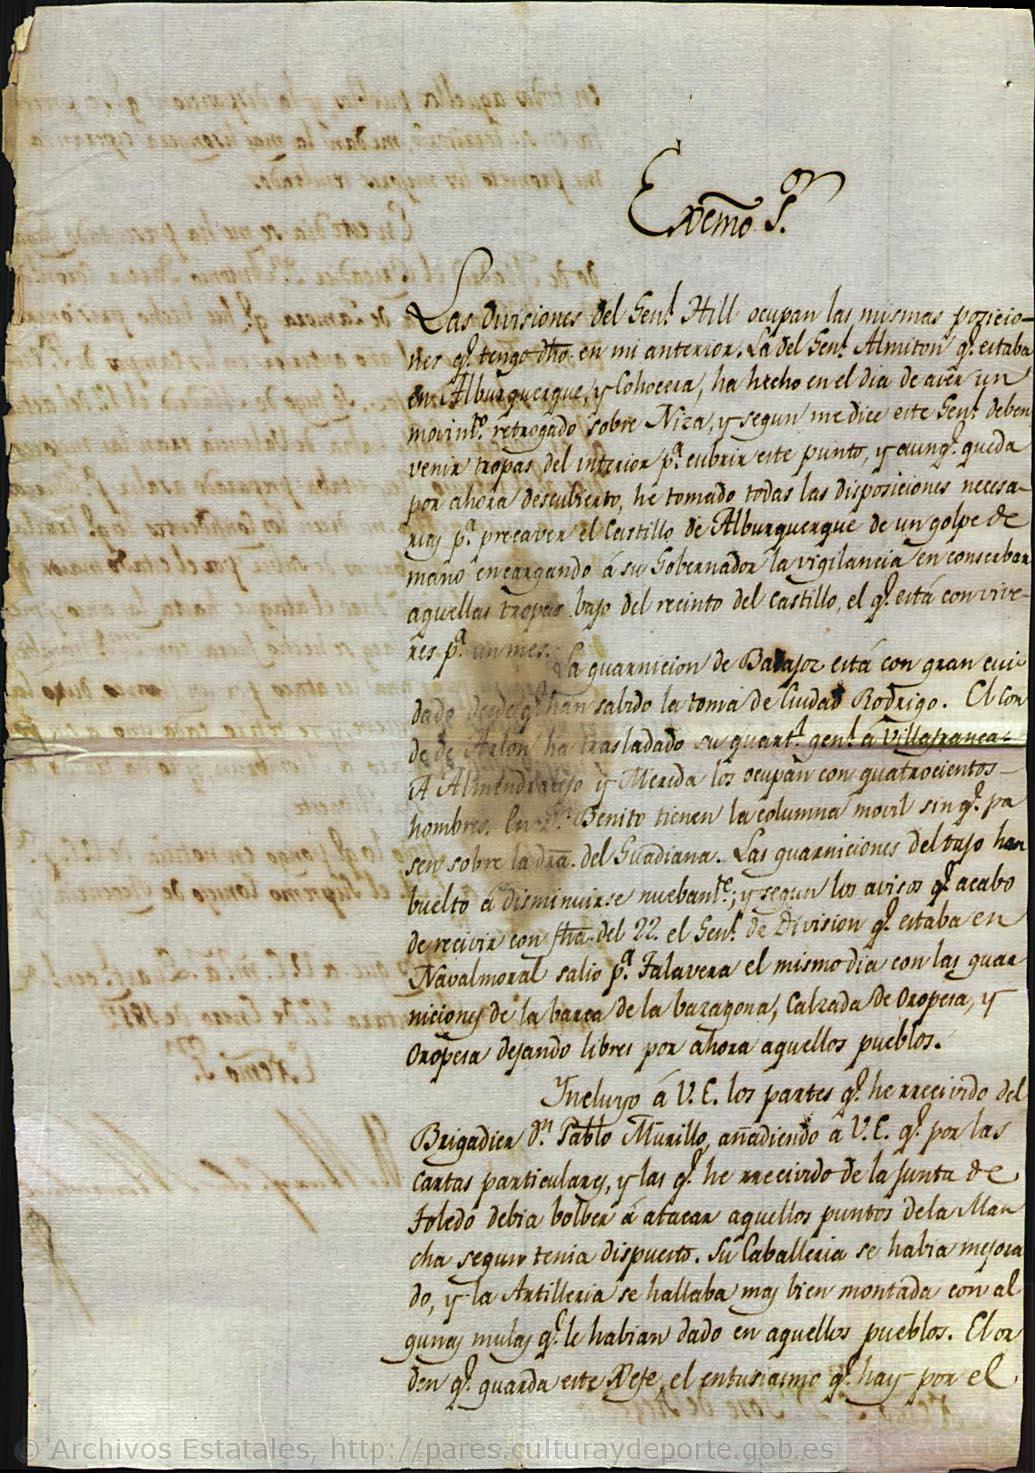 Exemo. Sor.
Las divisiones del Genl. Hill ocupan las mismas posicio-
nes qe. tengo dho. en mi anterior. La del Genl. Almiton qe. estaba
en Alburquerque, y Cohocera, ha hecho en el dia de ayer un
movinto. retrogado sobre Niza, y segun me dice este Genl. deben
venir tropas del interior pa. cubrir este punto, y aunqe. queda
por ahora descubierto, he tomado todas las disposiciones necesa-
rias pa. precaver el Castillo de Alburquerque de un golpe de
mano encargando á su Gobernador la vigilancia en conserbar
aquellas tropas bajo del recinto del Castillo, el qe. está con vive-
res pa. un mes.
La guarnicion de Badajoz está con gran cui
dado desde qe. han sabido la toma de Ciudad Rodrigo. El Con
de de Arlon ha trasladado su quartl. genl. á Villafranca.
A Almendralejo y Merida los ocupan con quatrocientos
hombres. En Dn. Benito tienen la columna movil sin qe. pa
sen sobre la dra. del Guadiana. Las guarniciones del tajo han
buelto á disminuirse nuebante.; y segun los avisos qe. acabo
de recivir con fha. del 22. el Genl. de Division qe. estaba en
Navalmoral salio pa. Talavera el mismo dia con las guar
niciones de la barca de la bazagona, Calzada de Oropesa, y
Oropesa dejando libres por ahora aquellos pueblos.
Yncluyo á V.E. los partes qe. he rrecivido del
Brigadier Dn. Pablo Murillo, añadiendo á V.E. qe. por las
cartas particulares, y las qe. he rrecivido de la Junta de
Toledo debia bolber á atacar aquellos puntos de la Man
cha segun tenia dispuesto. Su Caballeria se habia mejora
do, y la Artilleria se hallaba mas bien montada con al
gunas mulas qe. le habian dado en aquellos pueblos. El or
den qe. guarda este Xefe, el entusiasmo qe. hay por el
© Archivos Estatales, http://pares.culturaydeporte.gob.es